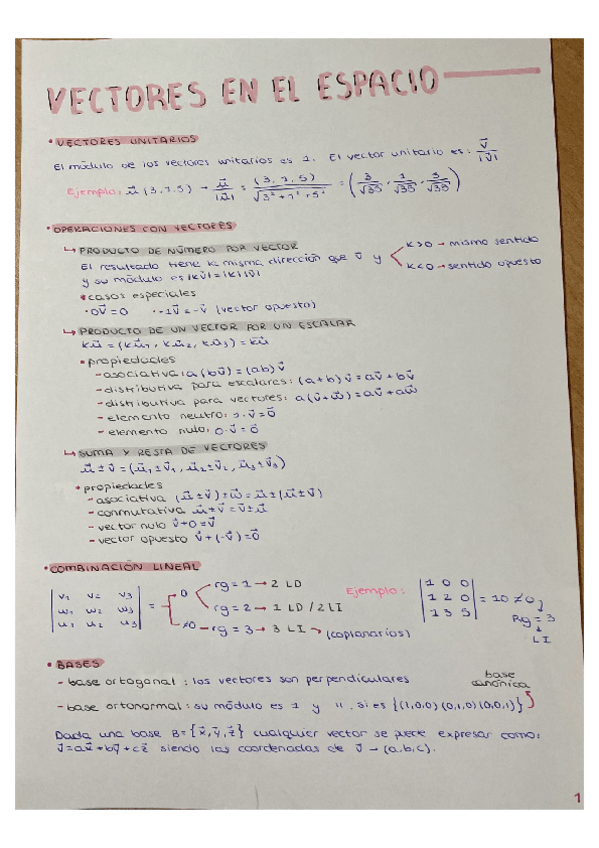 VECTORES EN EL ESPACIO
• VECTORES UNITARIOS
El módulo de los vectores unitarios es 1. El vector unitario es: v⃗/|v⃗|
Ejemplo: u⃗ (3,1,5) → u⃗/|u⃗| = (3,1,5)/√3²+1²+5² = (3/√35, 1/√35, 5/√35)
• OPERACIONES CON VECTORES
↳ PRODUCTO DE NÚMERO POR VECTOR
El resultado tiene la misma dirección que v⃗ y
k>0 → mismo sentido
y su módulo es |kv⃗|=|k||v⃗|
k<0 → sentido opuesto
• casos especiales
·0v⃗=0 ·-1v⃗=-v⃗ (vector opuesto)
↳ PRODUCTO DE UN VECTOR POR UN ESCALAR
ku⃗=(ku⃗₁, ku⃗₂, ku⃗₃)=ku⃗
• propiedades
- asociativa: a(bv⃗)=(ab)v⃗
- distributiva para escalares: (a+b)v⃗=av⃗+bv⃗
- distributiva para vectores: a(v⃗+w⃗)=av⃗+aw⃗
- elemento neutro: 1·v⃗=0⃗
- elemento nulo: 0·v⃗=0⃗
↳ SUMA Y RESTA DE VECTORES
u⃗±v⃗=(u⃗₁±v⃗₁, u⃗₂±v⃗₂, u⃗₃±v⃗₃)
• propiedades
- asociativa (u⃗±v⃗)±w⃗=u⃗±(u⃗±v⃗)
- conmutativa u⃗±v⃗=v⃗±u⃗
- vector nulo v⃗+0=v⃗
- vector opuesto v⃗+(-v⃗)=0⃗
• COMBINACIÓN LINEAL
|v₁ v₂ v₃|
|w₁ w₂ w₃| =
|u₁ u₂ u₃|
0
rg=1 → 2 LD
rg=2 → 1 LD / 2 LI
≠0 → rg=3 → 3 LI → (coplanarios)
Ejemplo:
|1 0 0|
|1 2 0| = 10 ≠ 0
|1 3 5|
Rg=3
LI
• BASES
- base ortogonal: los vectores son perpendiculares
base canónica
- base ortonormal: su módulo es 1 y ". si es {(1,0,0)(0,1,0)(0,0,1)}
Dada una base B={x⃗,y⃗,z⃗} cualquier vector se puede expresar como:
v⃗=ax⃗+by⃗+cz⃗ siendo las coordenadas de v⃗ → (a,b,c).
1